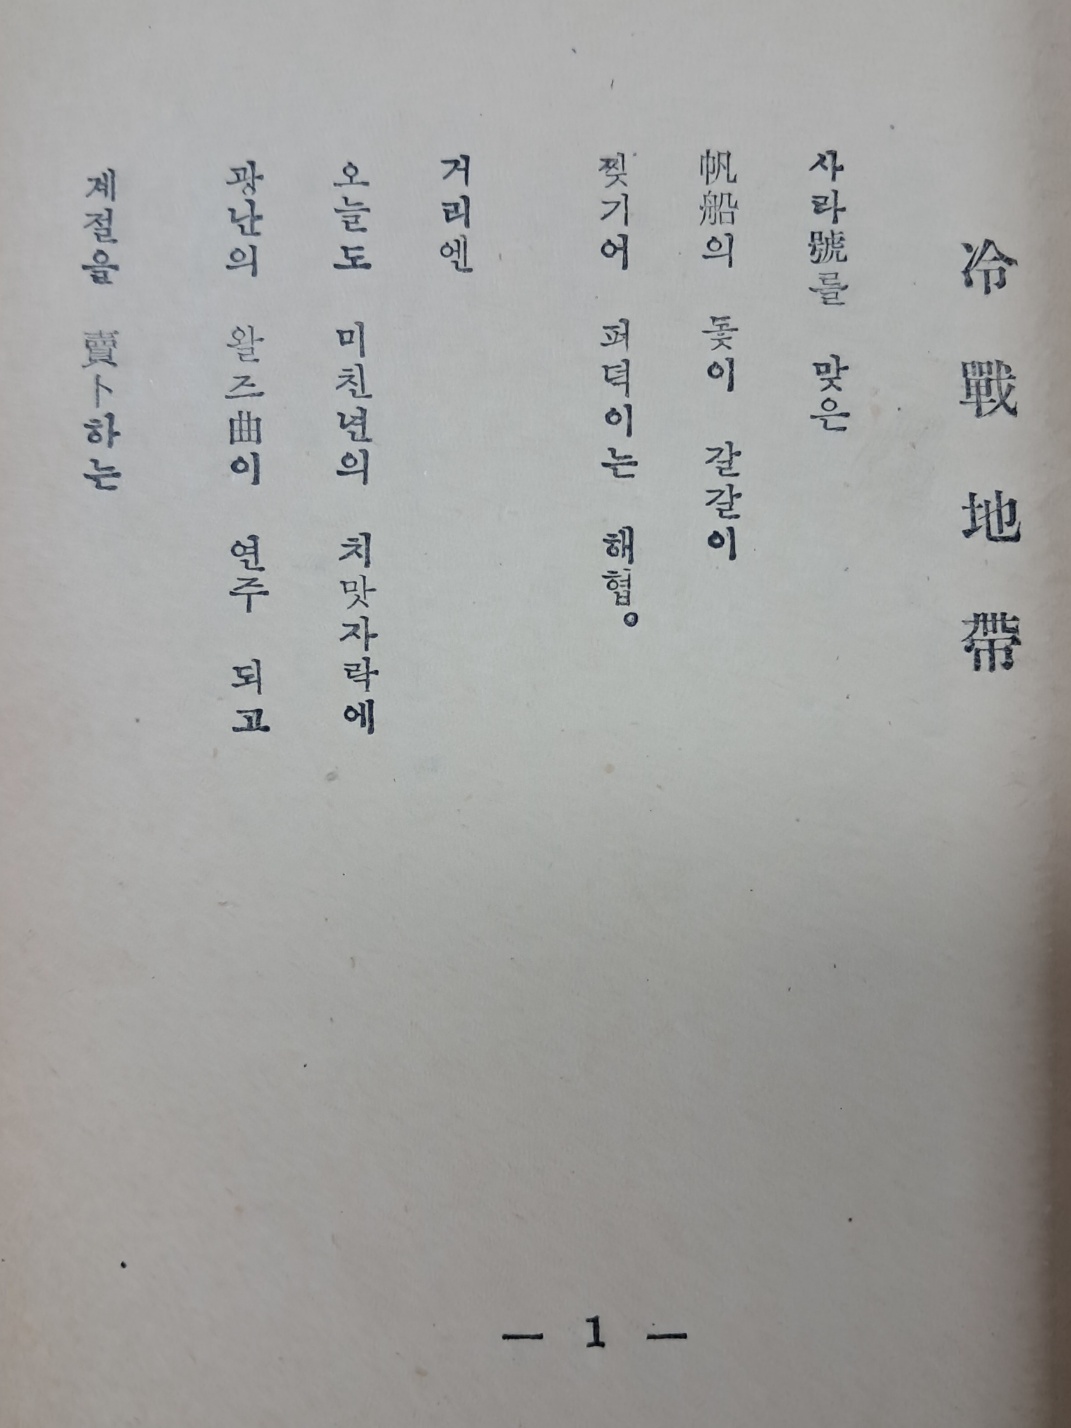 冷戰地帶
사라號를 맞은
帆船의 돛이 갈갈이
찢기어 퍼덕이는 해협。
거리엔
오늘도 미친년의 치맛자락에
광난의 왈즈曲이 연주 되고
계절을 賣卜하는
— 1 —